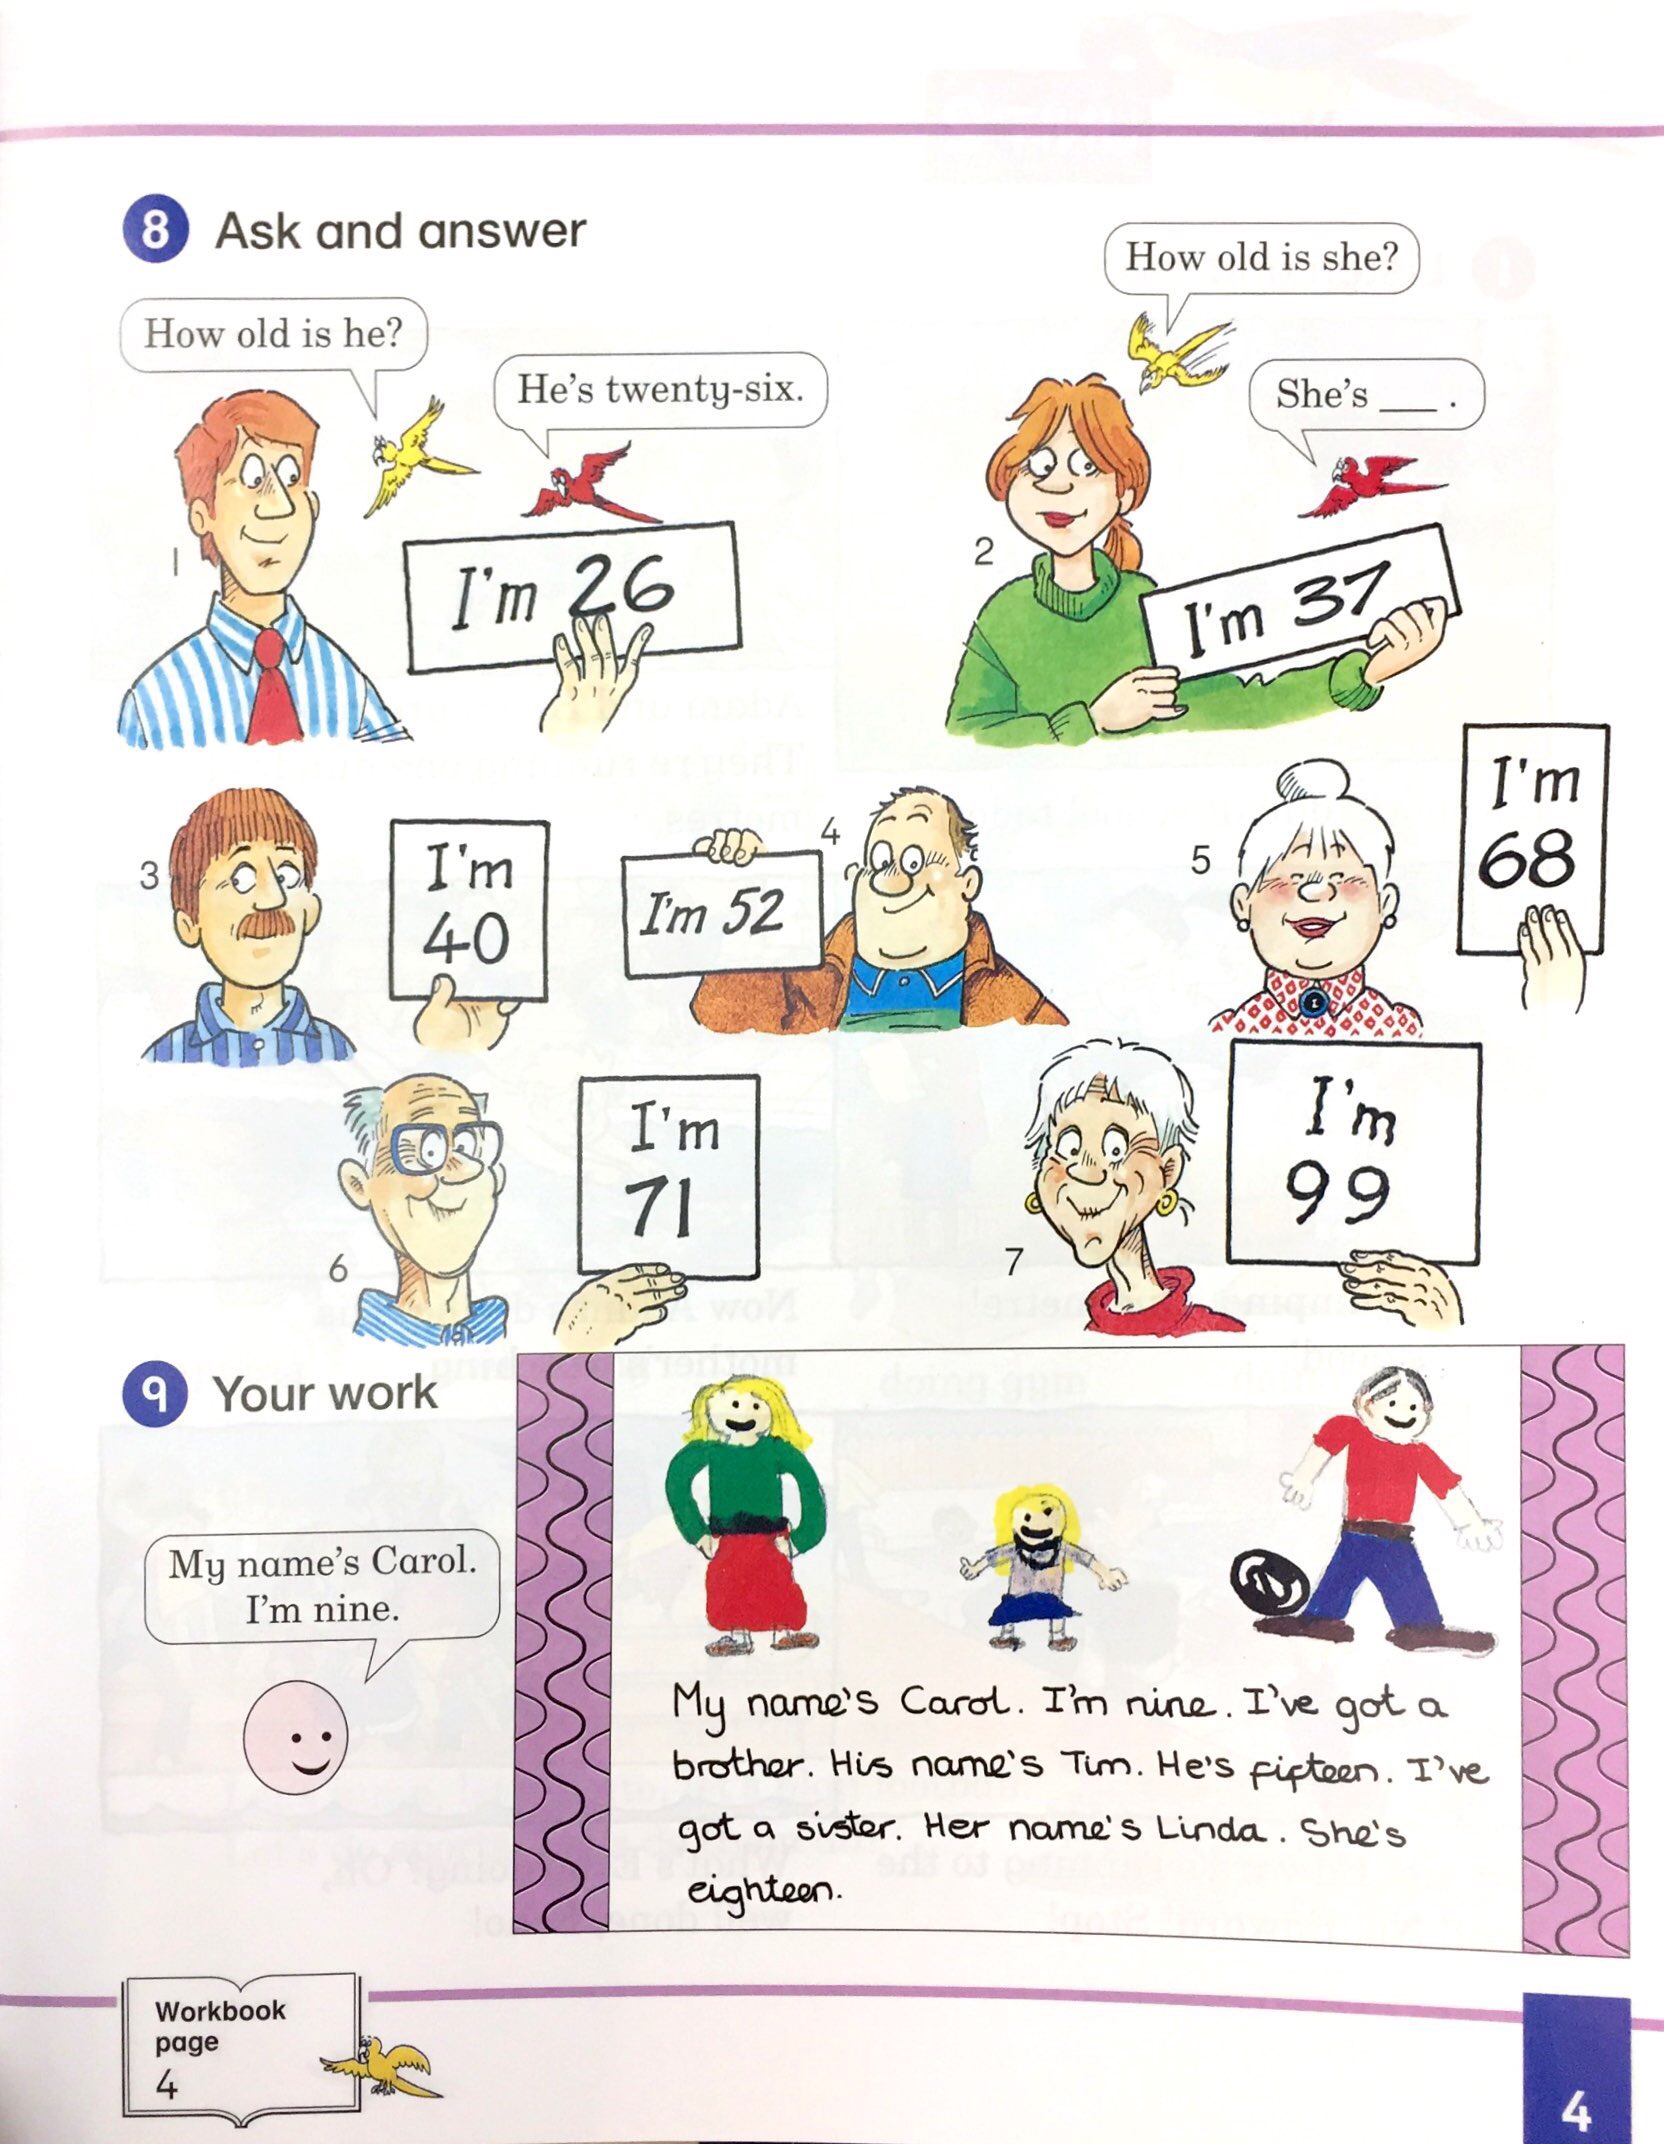 8 Ask and answer
How old is he?
He's twenty-six.
1
I'm 26
How old is she?
She's ___ .
2
I'm 37
3
I'm
40
4
I'm 52
5
I'm
68
6
I'm
71
7
I'm
99
9 Your work
My name's Carol.
I'm nine.
My name's Carol. I'm nine. I've got a
brother. His name's Tim. He's fifteen. I've
got a sister. Her name's Linda. She's
eighteen.
Workbook
page
4
4